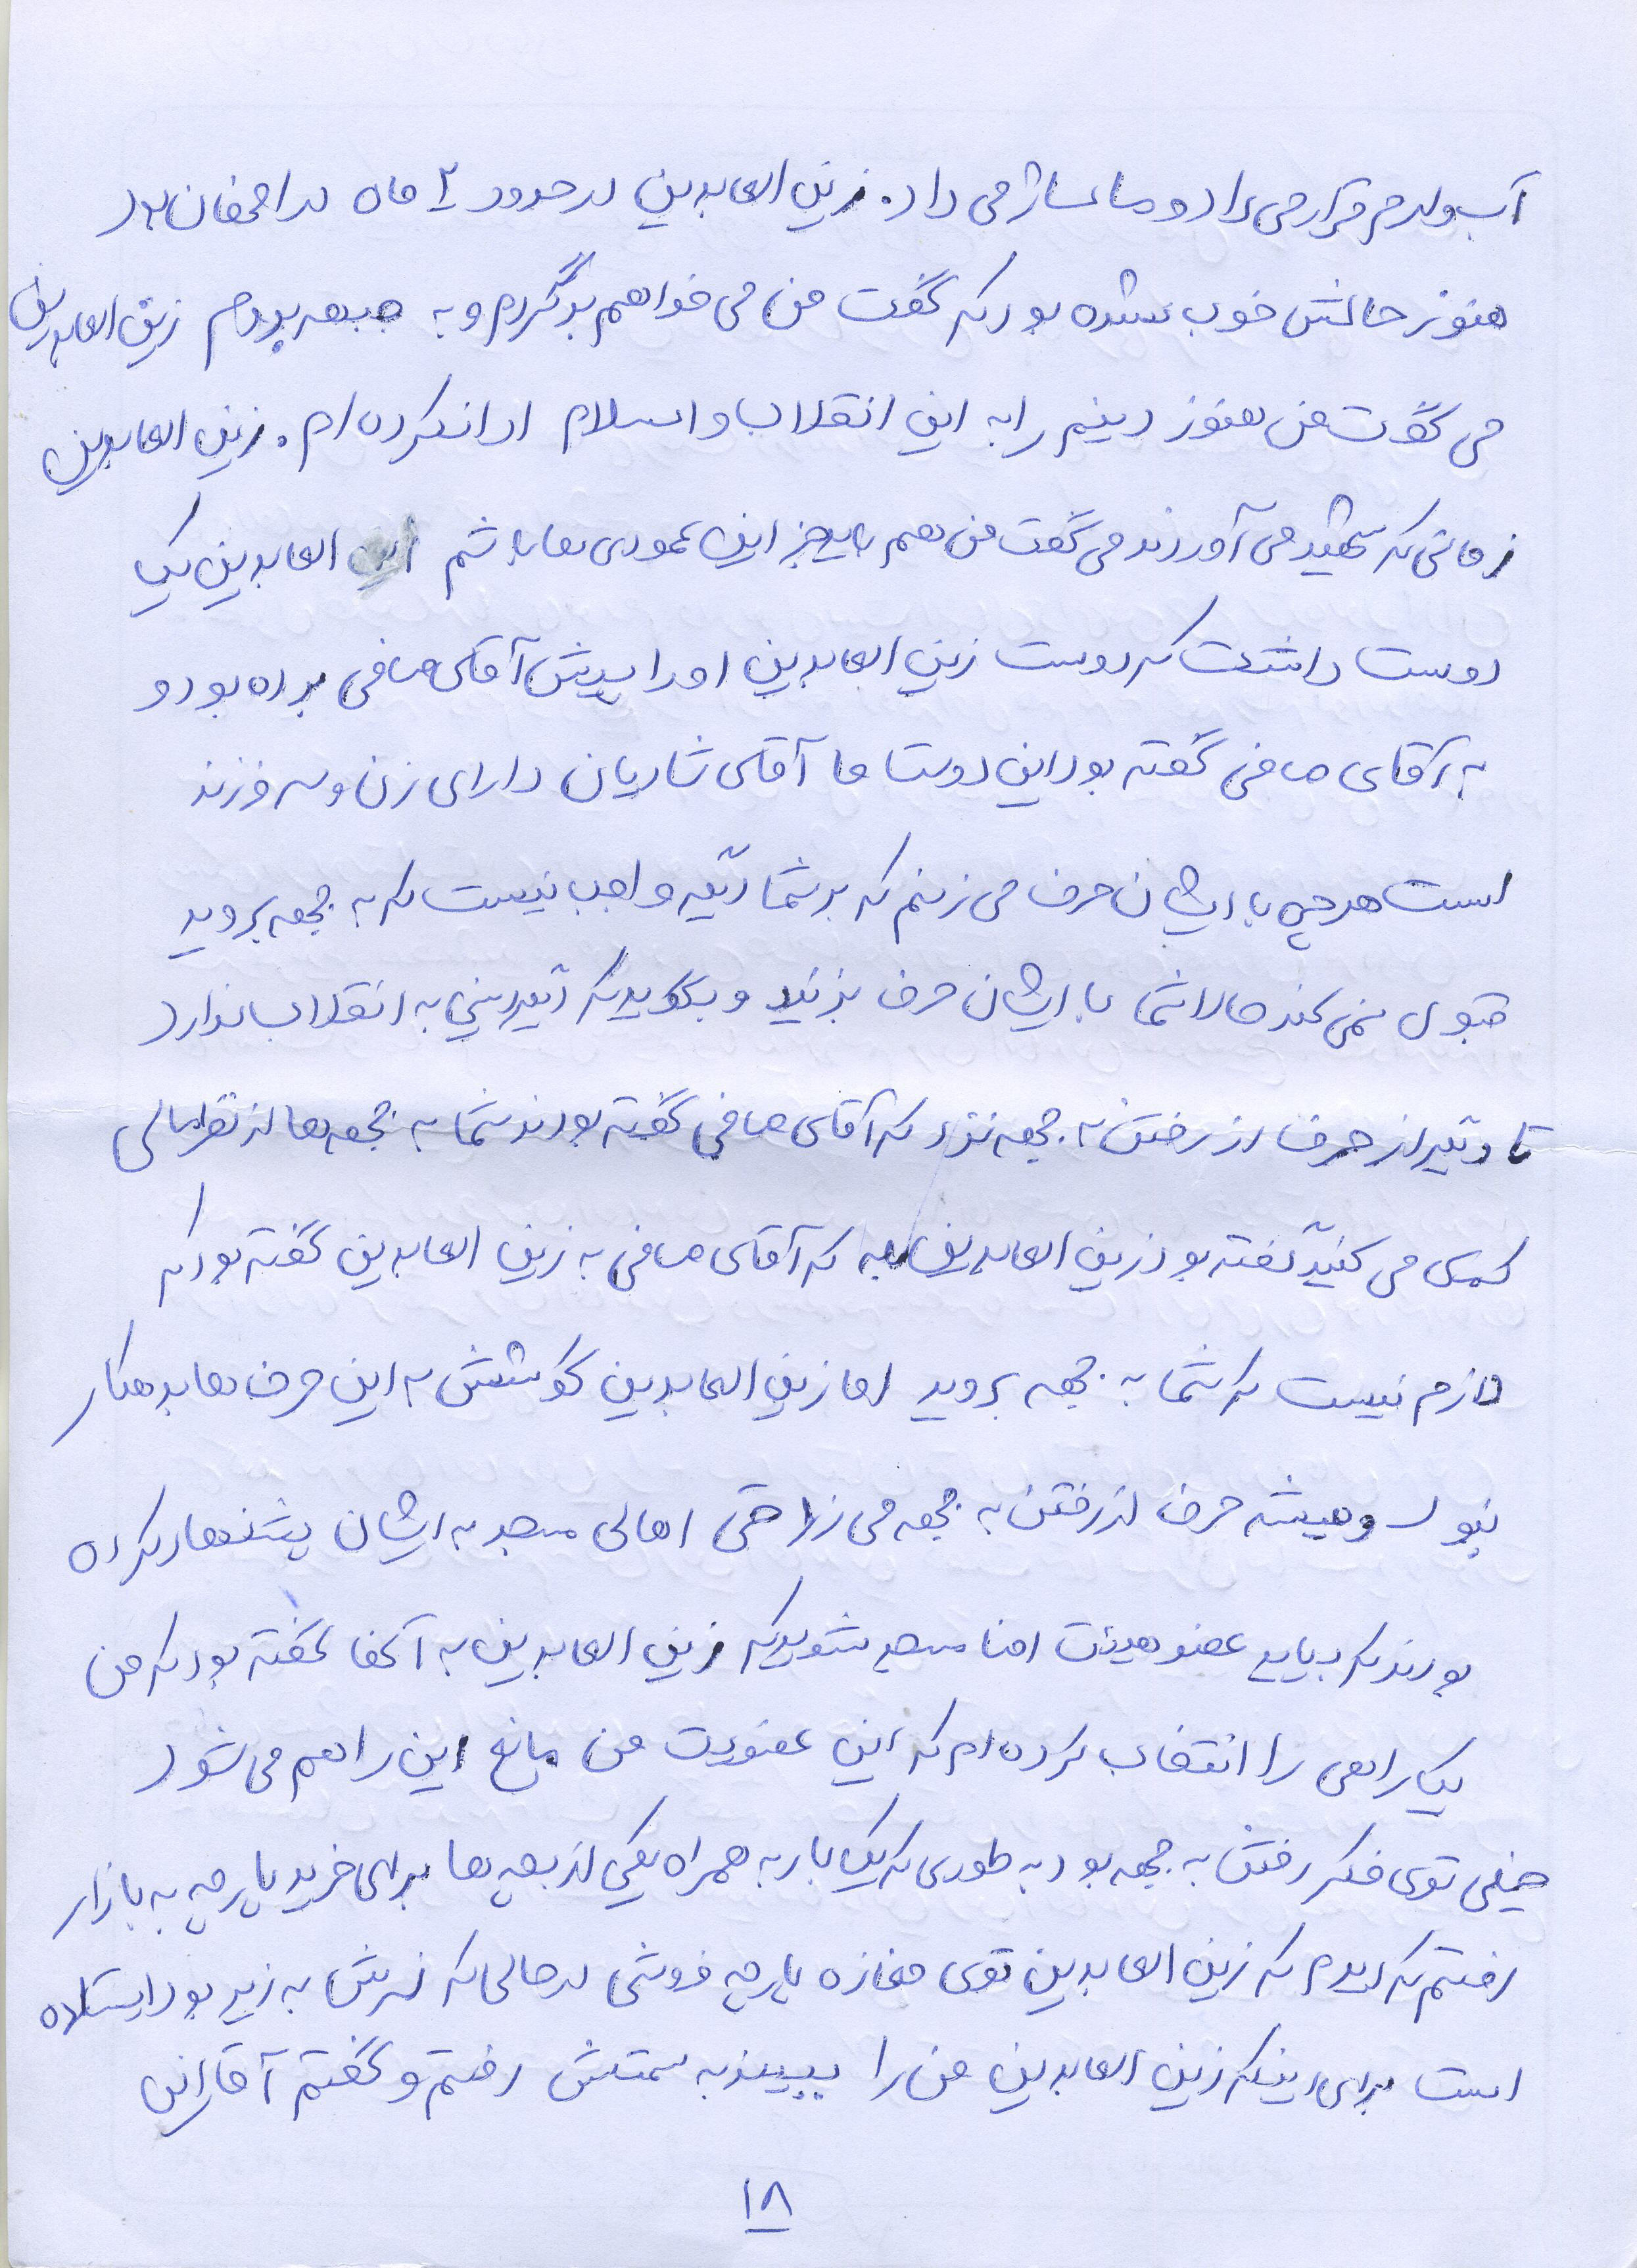 آب ولرم قرار می داد و ماساژ می داد. زین العابدین در حدود ۲ ماه در اصفهان بود
هنوز حالش خوب نشده بود که گفت من می خواهم برگردم و به جبهه بروم زین العابدین
می گفت من هنوز دینم را به این انقلاب و اسلام ادا نکرده ام. زین العابدین
زمانی که شهید می آوردند می گفت من هم باید جز این عموری ها باشم زین العابدین یک
دوست داشت که دوست زین العابدین او را پیش آقای صافی برده بود و
به آقای صافی گفته بود این دوست ما آقای شادیان دارای زن و سه فرزند
است هرچه با ایشان حرف می زنم که بر شما دیگه واجب نیست که به جبهه بروید
قبول نمی کند حالا شما با ایشان حرف بزنید و بگوید که دیگر دینی به انقلاب ندارد
تا دیگر از حرف از رفتن به جبهه نزند که آقای صافی گفته بودند شما به جبهه ها از نظر مالی
کمک می کنید گفته بود زین العابدین بله که آقای صافی به زین العابدین گفته بود که
لازم نیست که شما به جبهه بروید اما زین العابدین گوشش به این حرف ها بدهکار
نبود و همیشه حرف از رفتن به جبهه می زد حتی اهالی مسجد به ایشان پیشنهاد کرده
بودند که بیایید عضو هیئت امنا مسجد شوید که زین العابدین به آنها گفته بود که من
یک راهی را انتخاب کرده ام که این عضویت من مانع این راهم می شود
خیلی توی فکر رفتن به جبهه بود به طوری که یک بار به همراه یکی از بچه ها برای خرید پارچه به بازار
رفتم که دیدم که زین العابدین توی مغازه پارچه فروشی در حالی که سرش به زیر بود ایستاده
است برای اینکه زین العابدین من را ببیند به سمتش رفتم و گفتم آقا این
۱۸